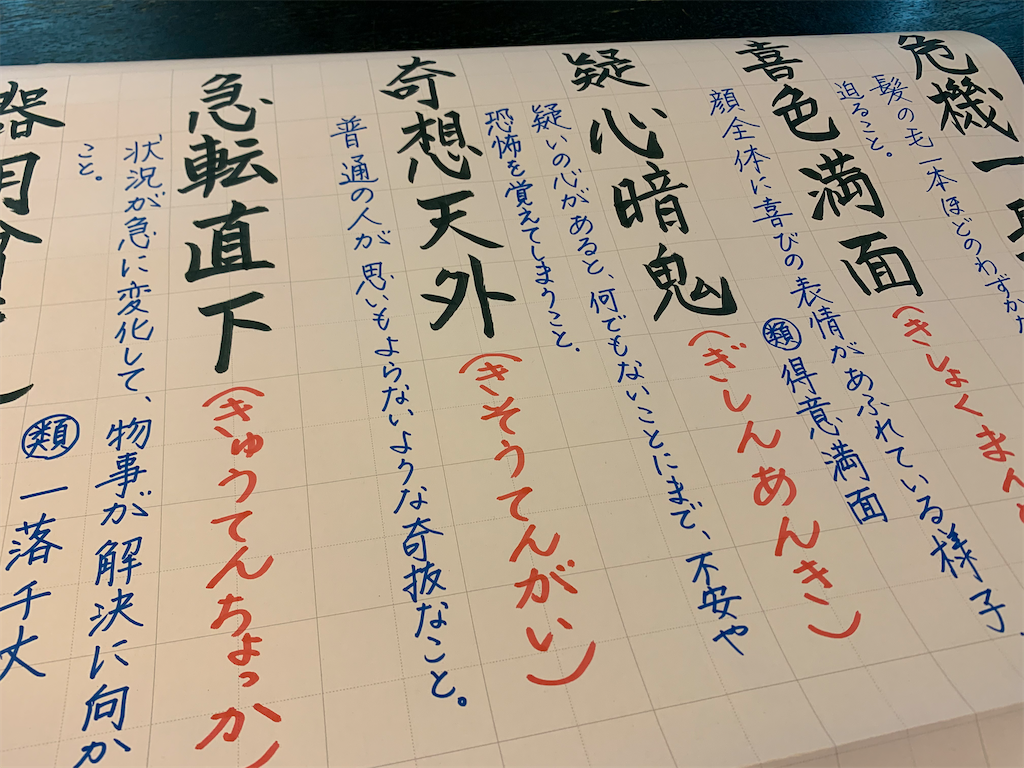 危機一
髪の毛一本ほどのわずか
迫ること。
喜色満面(きしょくまん
顔全体に喜びの表情があふれている様子
類 得意満面
疑心暗鬼(ぎしんあんき)
疑いの心があると、何でもないことにまで、不安や
恐怖を覚えてしまうこと。
奇想天外(きそうてんがい)
普通の人が思いもよらないような奇抜なこと。
急転直下(きゅうてんちょっか)
状況が急に変化して、物事が解決に向か
こと。
類 一落千丈
器用